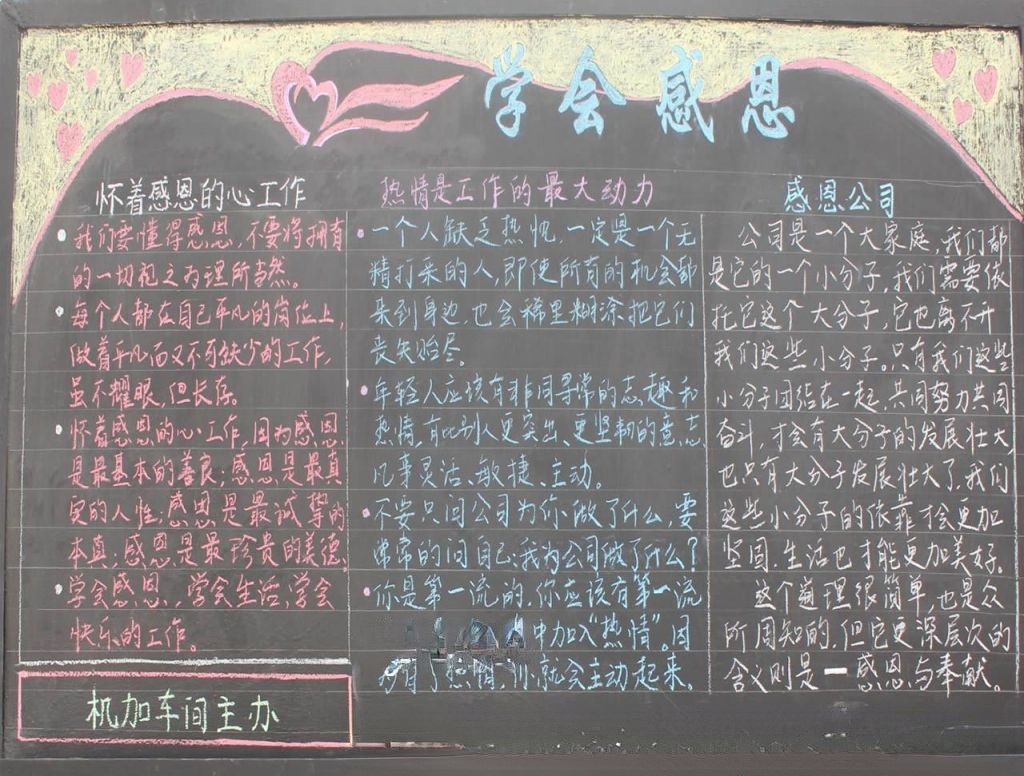 学会感恩
怀着感恩的心工作
我们要懂得感恩，不要将拥有
的一切视之为理所当然。
每个人都在自己平凡的岗位上，
做着平凡而又不可缺少的工作，
虽不耀眼，但长存。
怀着感恩的心工作，因为感恩
是最基本的善良；感恩是最真
实的人性；感恩是最诚挚的
本真；感恩是最珍贵的美德
学会感恩，学会生活，学会
快乐的工作。
机加车间主办
热情是工作的最大动力
一个人缺乏热忱，一定是一个无
精打采的人，即使所有的机会都
来到身边，也会稀里糊涂把它们
丧失贻尽。
年轻人应该有非同寻常的志趣和
热情，有比别人更突出、更坚韧的意志
凡事灵活、敏捷、主动。
不要只问公司为你做了什么，要
常常的问自己：我为公司做了什么？
你是第一流的，你应该有第一流
中加入“热情”。因
为有了热情，你就会主动起来。
感恩公司
公司是一个大家庭，我们都
是它的一个小分子，我们需要依
托它这个大分子，它也离不开
我们这些小分子。只有我们这些
小分子团结在一起，共同努力共同
奋斗，才会有大分子的发展壮大，
也只有大分子发展壮大了，我们
这些小分子的依靠才会更加
坚固，生活也才能更加美好。
这个道理很简单，也是众
所周知的，但它更深层次的
含义则是—感恩与奉献。